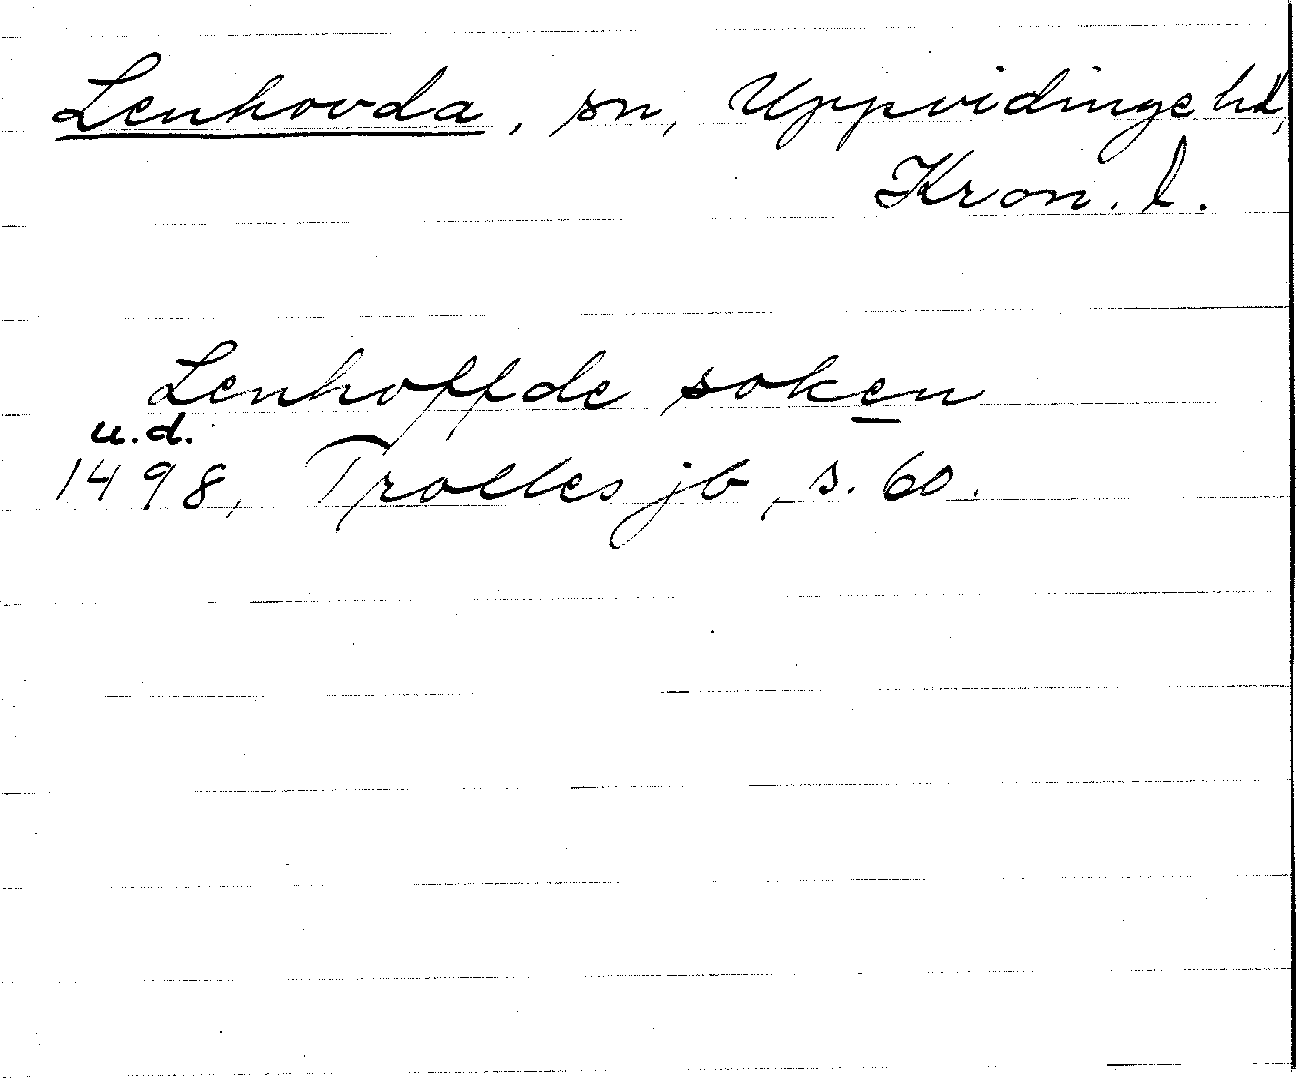 Lenhovda, sn, Uppvidinge hd,
Kron. l.
Lenhoffde soken
u.d.
1498, Trolles jb, s. 60.